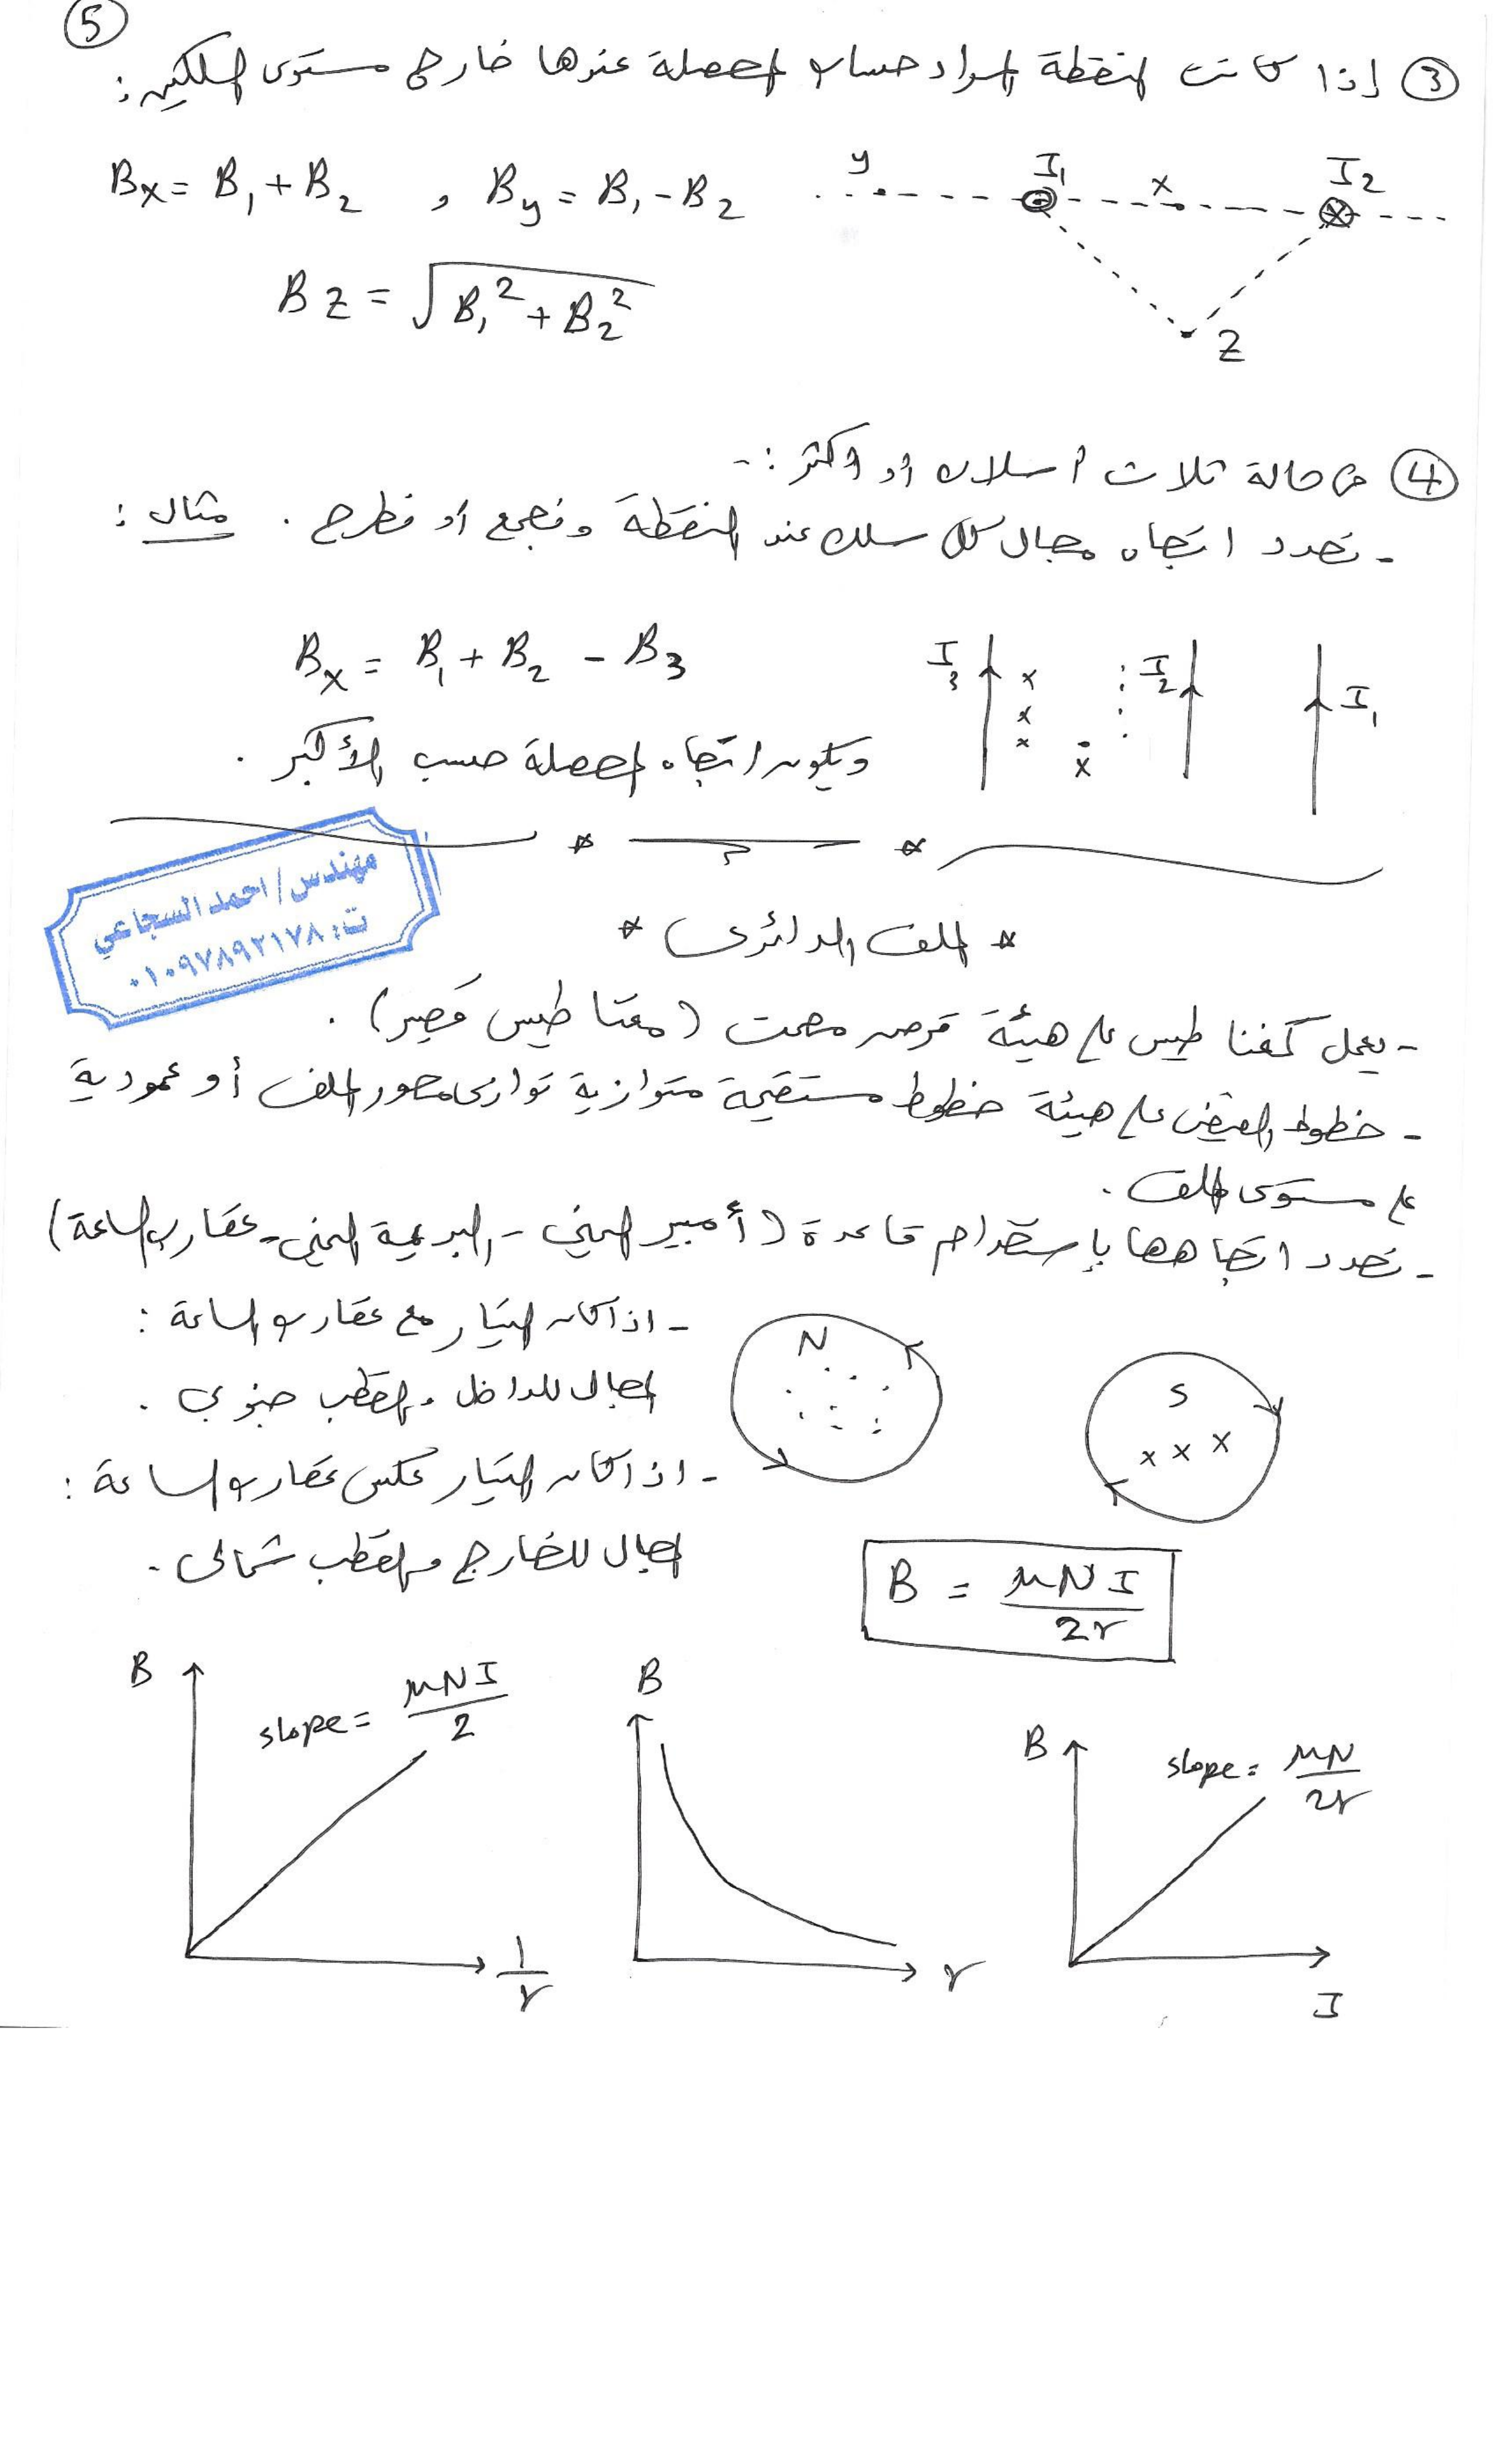 5
③ إذا كانت النقطة المراد حساب المحصلة عندها خارج مستوى السلكين :
Bx = B₁ + B₂ , By = B₁ - B₂
y I₁ x I₂
Bz = √(B₁² + B₂²)
Z
④ في حالة ثلاث أسلاك أو أكثر :-
- نحدد اتجاه مجال كل سلك عند النقطة ونجمع أو نطرح . مثال :
Bx = B₁ + B₂ - B₃
I₃ x x x x I₂ I₁
ويكون اتجاه المحصلة حسب الأكبر .
مهندس/احمد السجاعي
ت:٠١٠٩٧٨٩٢١٧٨
* الملف الدائرى *
- يعمل كمغناطيس على هيئة قرص مصمت (مغناطيس قصير) .
- خطوط الفيض على هيئة خطوط مستقيمة متوازية توازى محور الملف أو عمودية
على مستوى الملف .
- نحدد اتجاهها بإستخدام قاعدة (أمبير اليمنى - البريمة اليمنى - عقارب الساعة)
- اذا كان التيار مع عقارب الساعة :
المجال للداخل والقطب جنوبي .
N
S
x x x
- اذا كان التيار عكس عقارب الساعة :
المجال للخارج والقطب شمالى .
B = μNI / 2r
B slope = μNI / 2
1/r
B
r
B slope = μN / 2r
I